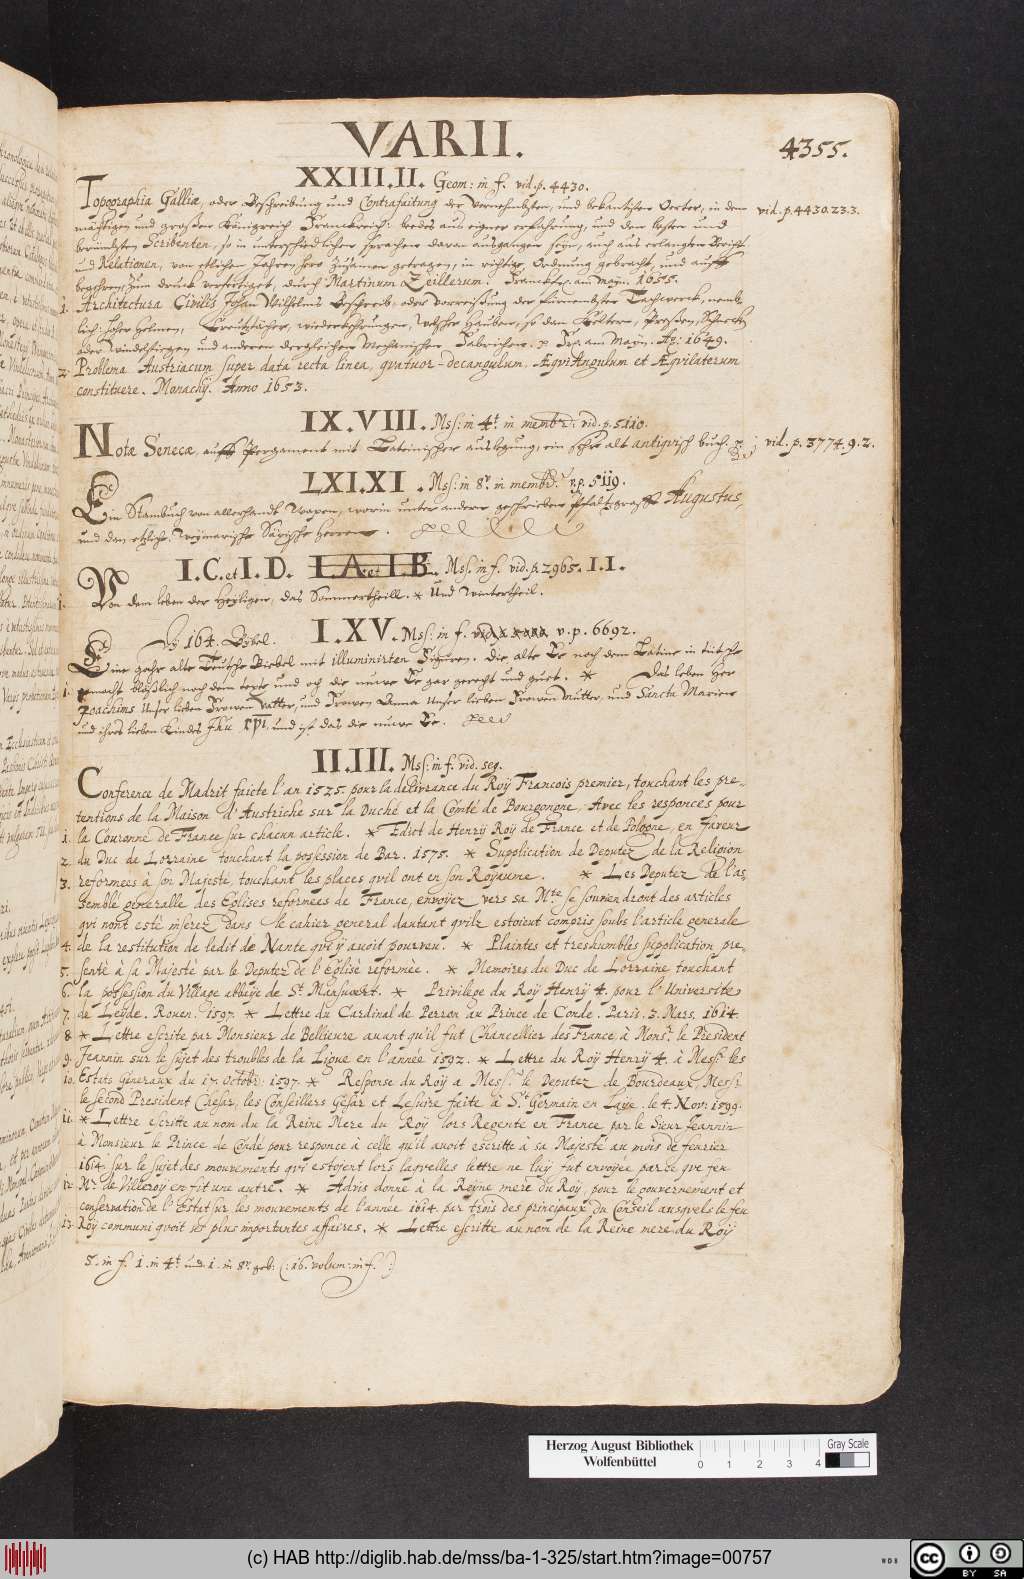 VARII.
4355.
XXIII.II. Geom: in f. vid. p. 4430.
Topographia Galliæ, oder Beschreibung und Contrafaitung der Vornehmbsten, und bekantesten Oerter, in dem vid. p. 4430.23.3.
mächtigen und grossen Königreich Franckreich: beedes aus eigner erfahrung, und den besten und
berümbsten Scribenten, so in unterschiedlichen sprachen davon ausgangen seyn, auch aus erlangten Bericht
und Relationen, von etlichen Jahren hero zusamen getragen, in richtige Ordnung gebracht, und auff
begehren, zum druck verfertiget, durch Martinum Zeillerum. Franckfr. am Mayn. 1655.
1. Architectura Civilis Johan Wilhelms Beschreib. oder Vorreissung der fürnembsten Tachwerck, nemb
lich hoher Helmen, Creutzdächer, wiederkehrungen, Welscher Hauben, so dan Keltern, Pressen, Schnecken
oder Windelstiegen und anderen dergleichen Mechanischen Fabrichen. Fr. am Mayn. Ao: 1649.
2. Problema Austriacum super data recta linea, qvatuor-decangulum, Æqviangulum et Æqvilaterum
constituere. Monachÿ. Anno 1653.
IX.VIII. Mss: in 4t. in membr: vid. p. 5110.
Notæ Senecæ, auff Pergament mit Lateinischer auslegung, ein sehr alt antiqvisch buch. vid. p. 3774.9.2.
LXI.XI. Mss: in 8o. in membr. v.p. 5119.
Ein Stambuch von allerhandt Wapen, worin unter andern geschrieben Pfaltzgraff Augustus,
und dan etliche Weymarische Säxische Herren.
I.C. et I.D. I.A. et I.B. Mss. in f. vid. p. 2965. I.I.
1. Von dem leben der Heyligen, das Sommertheill. * Und Wintertheil.
164. Bybel. I.XV. Mss: in f. v.p. 6692.
Eine gahr alte Teutsche Biebel mit illuminirten Figuren. Die alte Ee nach dem Latine in tütsche
1. gemacht bloßlich nach dem texte und och die nuwe Ee gar gerecht und guet. * Das leben Her
Joachims Unser lieben Frowen Vatter, und Frowen Anna Unser lieben Frowen Mutter, und Sancta Marien
und ihres lieben Kindes Jhu xpi. und ist das die nuwe Ee.
II.III. Mss: in f. vid. seq.
Conference de Madrit faicte l'an 1525. pour la delivrance du Roÿ Francois premier, touchant les pre-
tentions de la Maison d'Austriche sur la Duché et la Comté de Bourgongne. Avec les responces pour
1. la Couronne de France sur chacun article. * Edict de Henry Roÿ de France et de Pologne, en faveur
2. du Duc de Lorraine touchant la possession de Bar. 1575. * Supplication de Deputez de la Religion
3. reformees à son Majesté, touchant les places qvil ont en son Royaume. * Les Deputez de l'as-
semblé generalle des Eglises reformees de France, envoÿez vers sa Mte. se souviendront des articles
qvi nont esté inserez dans le cahier general dautant qvilz estoient compris soubs l'article generale
4. de la restitution de ledit de Nante qvi ÿ avoit pourveu. * Plaintes et treshumbles supplication pre-
5. senté à sa Majesté par le Deputez de l'Eglise reformée. * Memoires du Duc de Lorraine touchant
6. la possession du Village abbeÿe de St. Mansuært. * Privilege du Roÿ Henrÿ 4. pour l'Université
7. de Leyde. Rouen. 1597. * Lettre du Cardinal de Perron au Prince de Condé. Paris. 3. Mars. 1614.
8. * Lettre escrite par Monsieur de Bellieure avant qu'il fut Chancellier des France, à Monsr. le President
9. Jeannin sur le sujet des troubles de la Ligue en l'année 1592. * Lettre du Roÿ Henrÿ 4. à Messrs. les
10. Estats Generaux du 17. Octobr: 1597. * Response du Roÿ a Messrs. le Deputez de Bourdeaux, Messr
le second President Caesar, les Conseillers Gesar et Lesuire faite à St. Germain en Laÿe. le 4. Nov: 1599.
11. * Lettre escritte au nom du la Reine Mere du Roÿ lors Regente en France par le Sieur Jeannin
à Monsieur le Prince de Condé pour responce à celle qu'il avoit escritte à sa Majesté au mois de fevrier
1614. sur le sujet des mouvements qvi estoient lors laqvelles lettre ne luÿ fut envoyée par ce qve feu
12. Mr. de Villeroÿ en fit une autre. * Advis donné à la Reyne mere du Roÿ, pour le gouvernement et
conservation de l'Estat sur les mouvements de l'année 1614. par trois des principaux du Conseil ausqvels le feu
13. Roÿ communiqvoit ses plus importantes affaires. * Lettre escritte au nom de la Reine mere du Roÿ
5. in f. 1. in 4t. und 1. in 8o. geb: (: 16. volum: in f. :)
Herzog August Bibliothek
Wolfenbüttel
0 1 2 3 4
Gray Scale
(c) HAB http://diglib.hab.de/mss/ba-1-325/start.htm?image=00757
WDB
cc BY SA